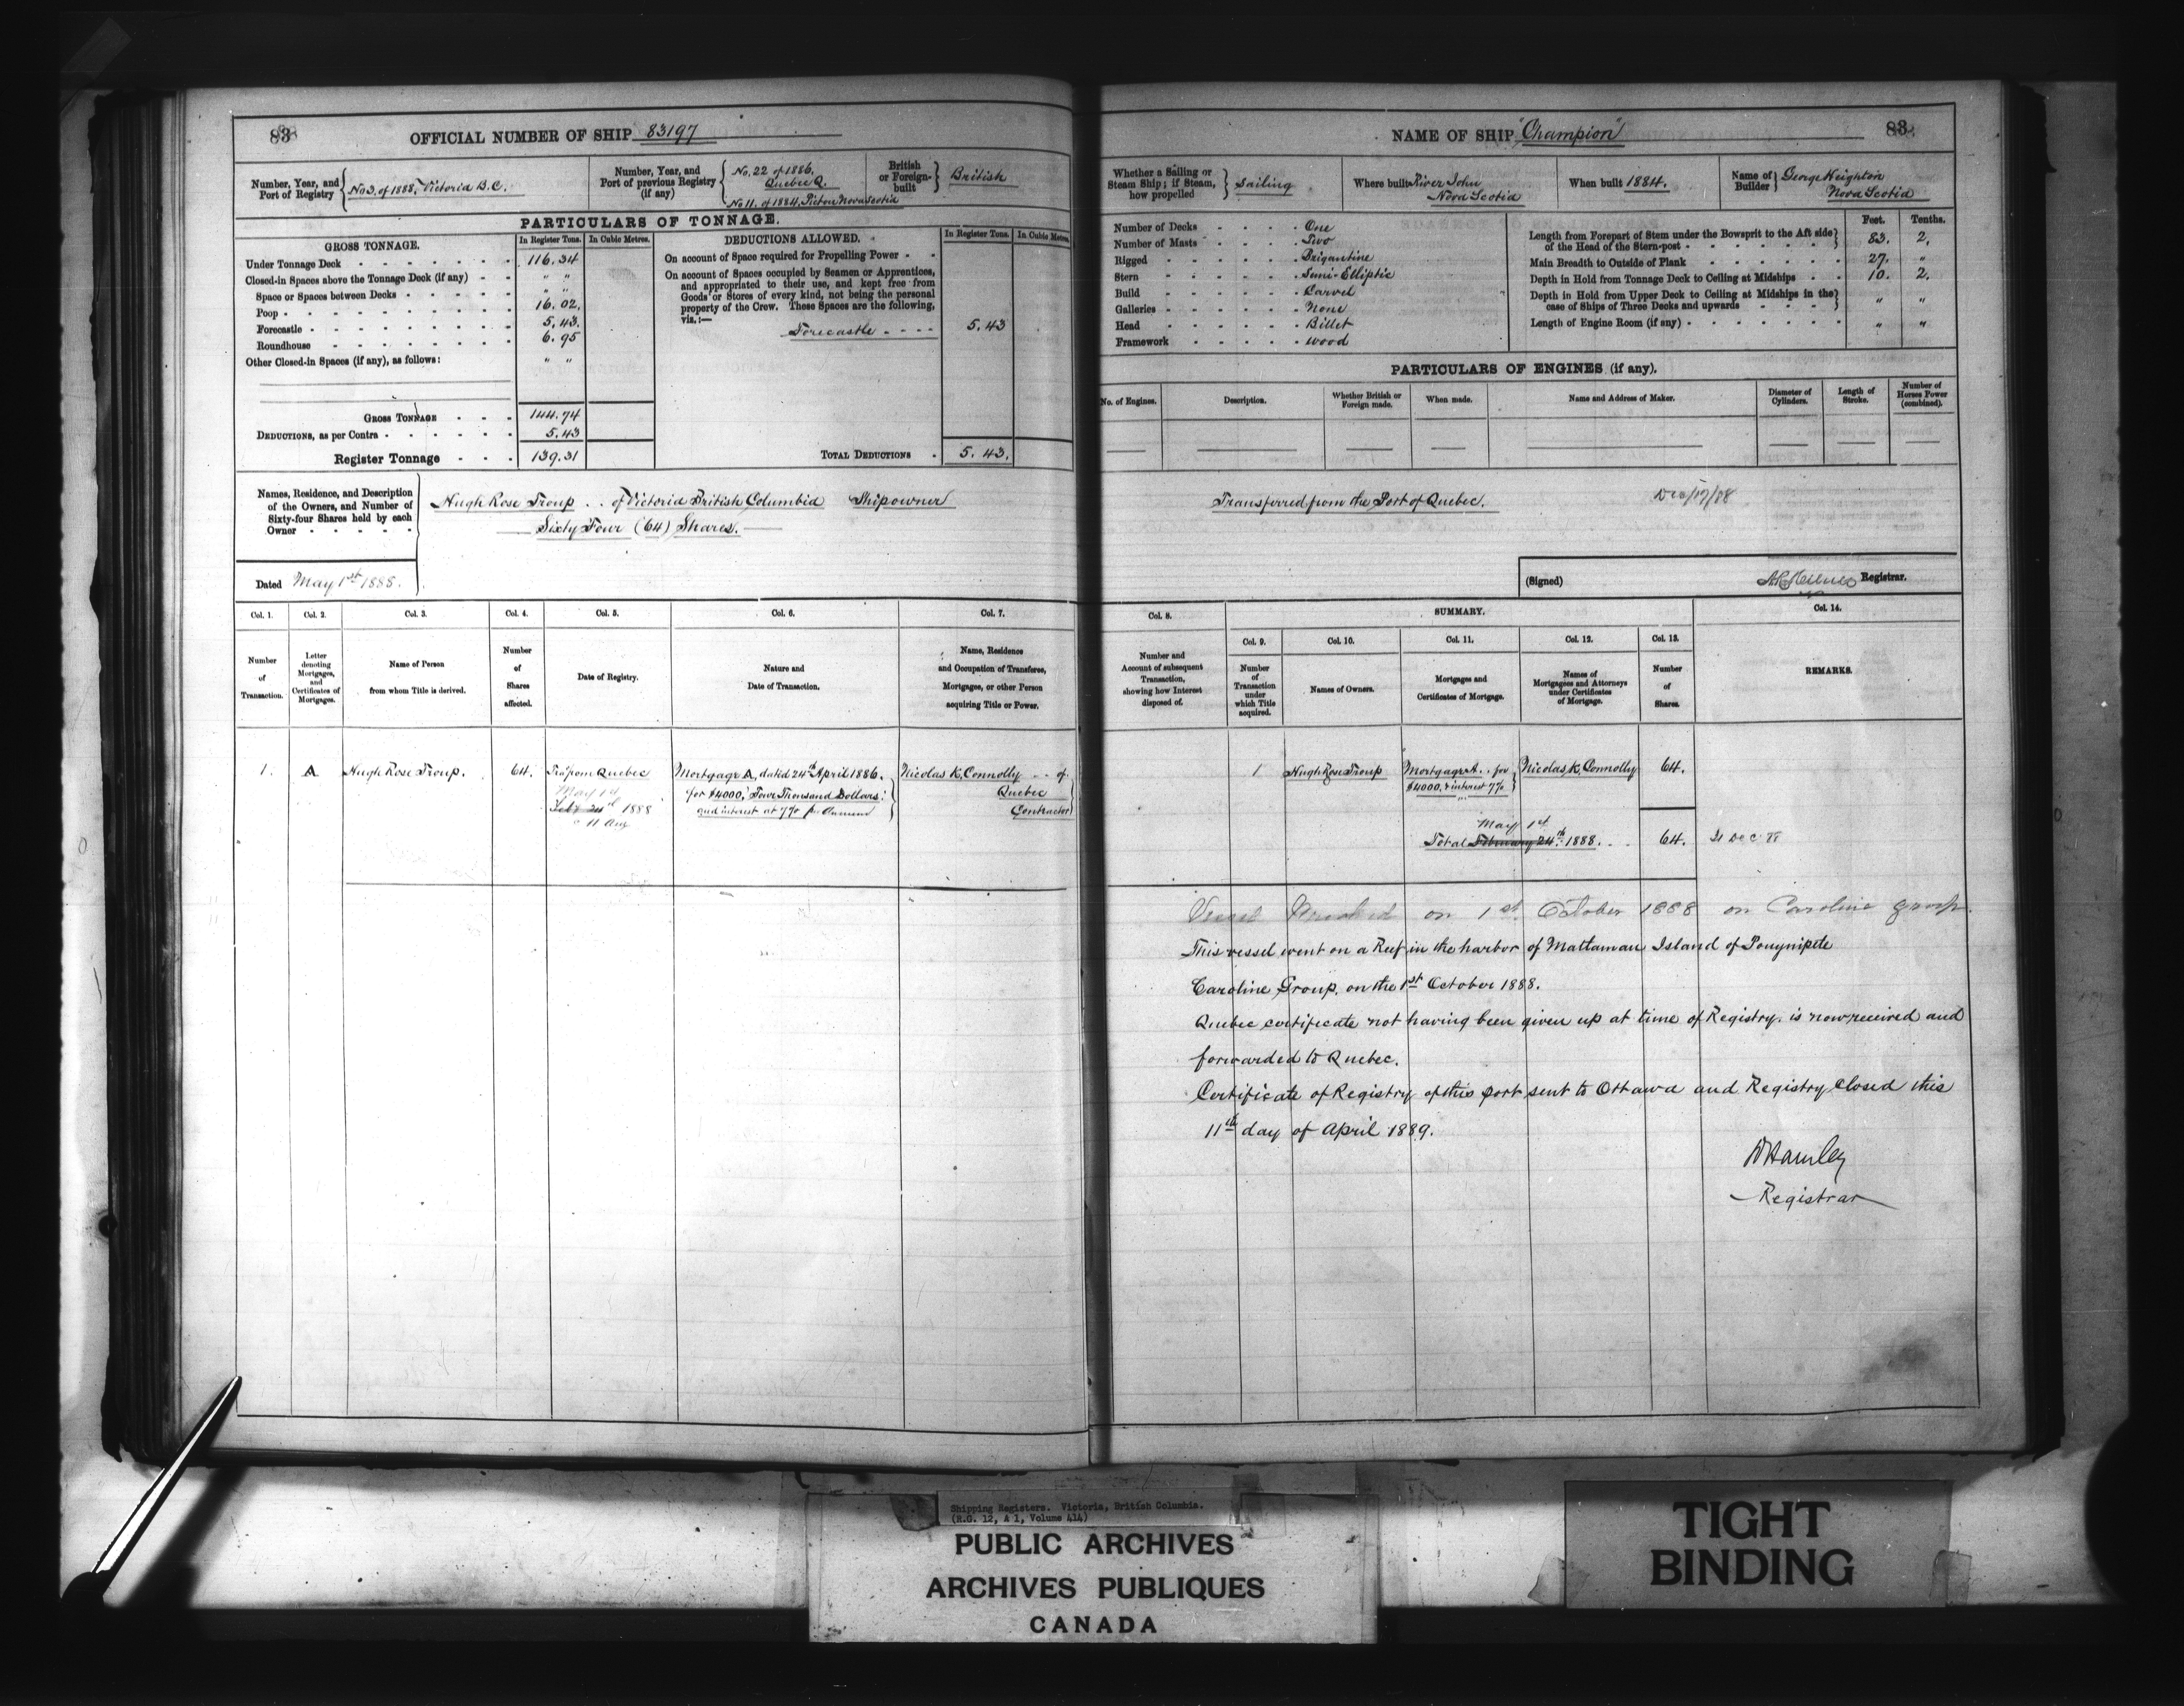 83
OFFICIAL NUMBER OF SHIP 83197
Number, Year, and Port of Registry
No 3, of 1888, Victoria B.C.
Number, Year, and Port of previous Registry (if any)
No. 22 of 1886,
Quebec Q.
No 11. of 1884, Pictou Nova Scotia
British or Foreign-built
British
PARTICULARS OF TONNAGE.
GROSS TONNAGE.
In Register Tons.
In Cubic Metres.
Under Tonnage Deck 116.34
Closed-in Spaces above the Tonnage Deck (if any) " "
Space or Spaces between Decks " "
Poop 16.02.
Forecastle 5.43.
Roundhouse 6.95
Other Closed-in Spaces (if any), as follows: " "
GROSS TONNAGE 144.74
DEDUCTIONS, as per Contra 5.43
Register Tonnage 139.31
DEDUCTIONS ALLOWED.
In Register Tons.
In Cubic Metres.
On account of Space required for Propelling Power
On account of Spaces occupied by Seamen or Apprentices,
and appropriated to their use, and kept free from
Goods or Stores of every kind, not being the personal
property of the Crew. These Spaces are the following,
viz.:—
Forecastle 5.43
TOTAL DEDUCTIONS 5.43.
Names, Residence, and Description
of the Owners, and Number of
Sixty-four Shares held by each
Owner
Hugh Rose Troup . . of Victoria British Columbia Shipowner
Sixty Four (64) Shares.
Dated May 1st 1888.
Col. 1.
Number of Transaction.
Col. 2.
Letter denoting Mortgages, and Certificates of Mortgages.
Col. 3.
Name of Person from whom Title is derived.
Col. 4.
Number of Shares affected.
Col. 5.
Date of Registry.
Col. 6.
Nature and Date of Transaction.
Col. 7.
Name, Residence and Occupation of Transferee, Mortgagee, or other Person acquiring Title or Power.
1. A Hugh Rose Troup. 64.
from Quebec
May 1st
Feby 24th 1888
11 am
Mortgage A, dated 24th April 1886.
for $4000, Four Thousand Dollars
and interest at 7% per Annum
Nicolas K. Connolly . . of
Quebec
Contractor
NAME OF SHIP "Champion"
83
Whether a Sailing or Steam Ship; if Steam, how propelled
Sailing
Where built River John
Nova Scotia
When built 1884.
Name of Builder
George Keighton
Nova Scotia
Number of Decks One
Number of Masts Two
Rigged Brigantine
Stern Semi-Elliptic
Build Carvel
Galleries None
Head Billet
Framework wood
Feet. Tenths.
Length from Forepart of Stem under the Bowsprit to the Aft side
of the Head of the Stern-post 83. 2.
Main Breadth to Outside of Plank 27. "
Depth in Hold from Tonnage Deck to Ceiling at Midships 10. 2.
Depth in Hold from Upper Deck to Ceiling at Midships in the
case of Ships of Three Decks and upwards " "
Length of Engine Room (if any) " "
PARTICULARS OF ENGINES (if any).
No. of Engines.
Description.
Whether British or Foreign made.
When made.
Name and Address of Maker.
Diameter of Cylinders.
Length of Stroke.
Number of Horses Power (combined).
Transferred from the Port of Quebec.
Dec/17/88
(Signed)
Registrar.
Col. 8.
Number and Account of subsequent Transaction, showing how Interest disposed of.
SUMMARY.
Col. 9.
Number of Transaction under which Title acquired.
Col. 10.
Names of Owners.
Col. 11.
Mortgages and Certificates of Mortgage.
Col. 12.
Names of Mortgagees and Attorneys under Certificates of Mortgage.
Col. 13.
Number of Shares.
Col. 14.
REMARKS.
1 Hugh Rose Troup
Mortgage A. . for
$4000, & interest 7%
Nicolas K. Connolly 64.
May 1st
Total February 24th 1888. . . 64.
Dec 88
Vessel Wrecked on 1st October 1888 on Caroline group.
This vessel went on a Reef in the harbor of Mattaman Island of Pouynipete
Caroline Group, on the 1st October 1888.
Quebec certificate not having been given up at time of Registry. is now received and
forwarded to Quebec.
Certificate of Registry of this port sent to Ottawa and Registry closed this
11th day of April 1889.
W Hamley
Registrar
Shipping Registers. Victoria, British Columbia.
(R.G. 12, A 1, Volume 414)
PUBLIC ARCHIVES
ARCHIVES PUBLIQUES
CANADA
TIGHT
BINDING